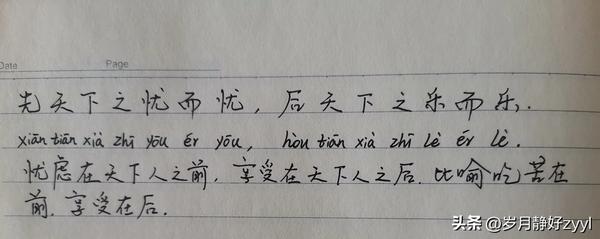 Date Page
先天下之忧而忧，后天下之乐而乐.
xiān tiān xià zhī yōu ér yōu, hòu tiān xià zhī lè ér lè.
忧虑在天下人之前，享受在天下人之后. 比喻吃苦在
前，享受在后.
头条 @岁月静好zyyl